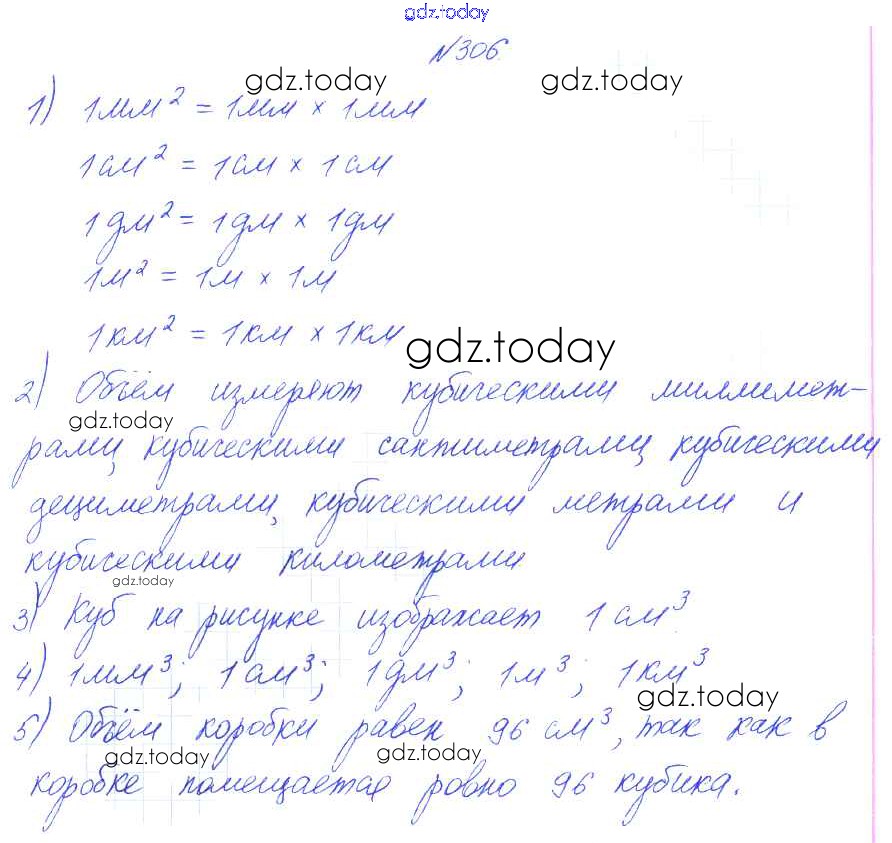 gdz.today
№306
gdz.today gdz.today
1) 1мм² = 1мм × 1мм
1см² = 1см × 1см
1дм² = 1дм × 1дм
1м² = 1м × 1м
1км² = 1км × 1км
gdz.today
2) Объём измеряют кубическими миллимет-
gdz.today
рами, кубическими сантиметрами, кубическими
дециметрами, кубическими метрами и
кубическими километрами
gdz.today
3) Куб на рисунке изображает 1 см³
4) 1мм³; 1см³; 1дм³; 1м³; 1км³
gdz.today
5) Объём коробки равен 96 см³, так как в
gdz.today gdz.today
коробке помещается ровно 96 кубика.